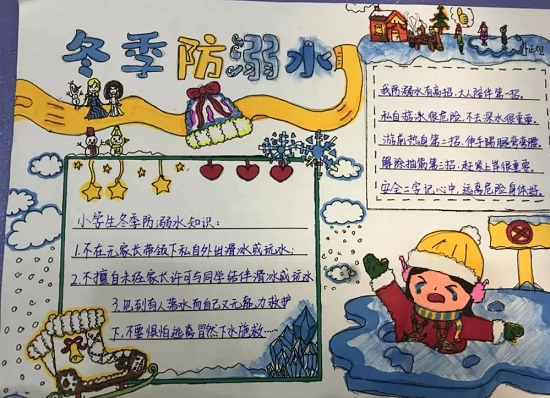 冬季防溺水
我防溺水有高招,大人陪伴第一招。
私自游泳很危险,不去深水很重要。
游前热身第二招,伸手踢腿弯弯腰。
解除抽筋第三招,赶紧上岸很重要。
安全二字记心中,远离危险身体好。
小学生冬季防溺水知识:
1.不在无家长带领下私自外出滑冰或玩水;
2.不擅自未经家长许可与同学结伴滑冰或玩水
3.见到有人落水而自己又无能力救护
下,不要惧怕逃离冒然下水施救……